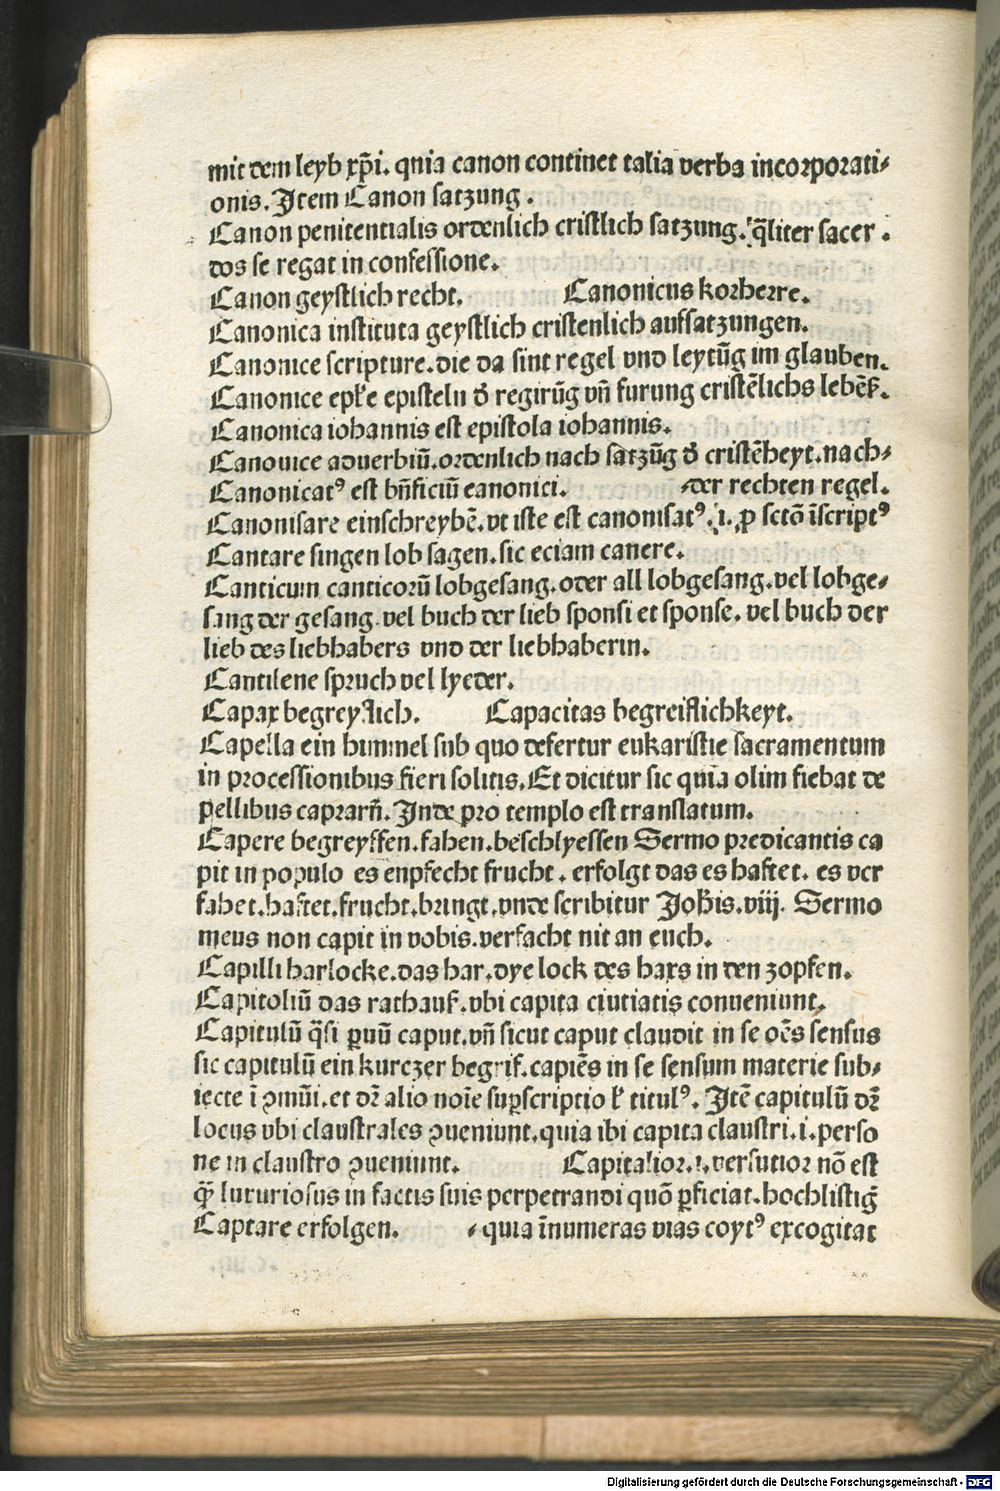 mit dem leyb xp̄i. qnia canon continet talia verba incorporati⸗
onis. Item Canon satzung.
Canon penitentialis ordenlich cristlich satzung. q̄liter sacer.
dos se regat in confessione.
Canon geystlich recht. Canonicus korherre.
Canonica instituta geystlich cristenlich auffsatzungen.
Canonice scripture. die da sint regel vnd leytūg im glauben.
Canonice ep̄le episteln đ regirūg vn̄ furung cristēlichs lebēß.
Canonica iohannis est epistola iohannis.
Canonice aduerbiū. ordenlich nach satzūg đ cristēheyt. nach⸗
Canonicatꝰ est bn̄ficiū canonici. ⸗der rechten regel.
Canonisare einschreybē. vt iste est canonisatꝰ. i. ꝓ sctō īscriptꝰ
Cantare singen lob sagen. sic eciam canere.
Canticum canticorū lobgesang. oder all lobgesang. vel lobge⸗
sang der gesang. vel buch der lieb sponsi et sponse. vel buch der
lieb des liebhabers vnd der liebhaberin.
Cantilene spruch vel lyeder.
Capax begreyflich. Capacitas begreiflichkeyt.
Capella ein himmel sub quo defertur eukaristie sacramentum
in processionibus fieri solitis. Et dicitur sic quia olim fiebat de
pellibus caprarn̄. Inde pro templo est translatum.
Capere begreyffen. fahen. beschlyessen Sermo predicantis ca
pit in populo es enpfecht frucht. erfolgt das es haftet. es ver
fahet. haftet. frucht. bringt. vnde scribitur Joh̄is. viij. Sermo
meus non capit in vobis. verfacht nit an euch.
Capilli harlocke. das har. dye lock des hars in den zopfen.
Capitoliū das rathauß. vbi capita ciuitatis conueniunt.
Capitulū q̄si ꝑuū caput. vn̄ sicut caput claudit in se oēs sensus
sic capitulū ein kurczer begrif. capiēs in se sensum materie sub⸗
iecte ī ꝯmūi. et dr̄ alio noīe suꝑscriptio ł titulꝰ. Itē capitulū dr̄
locus vbi claustrales ꝯueniunt. quia ibi capita claustri. i. perso
ne in claustro ꝯueniunt. Capitalior. i. versutior nō est
q̄ luxuriosus in factis suis perpetrandi quō ꝑficiat. hochlistig
Captare erfolgen. ⸗quia īnumeras vias coytꝰ excogitat
Digitalisierung gefördert durch die Deutsche Forschungsgemeinschaft - DFG